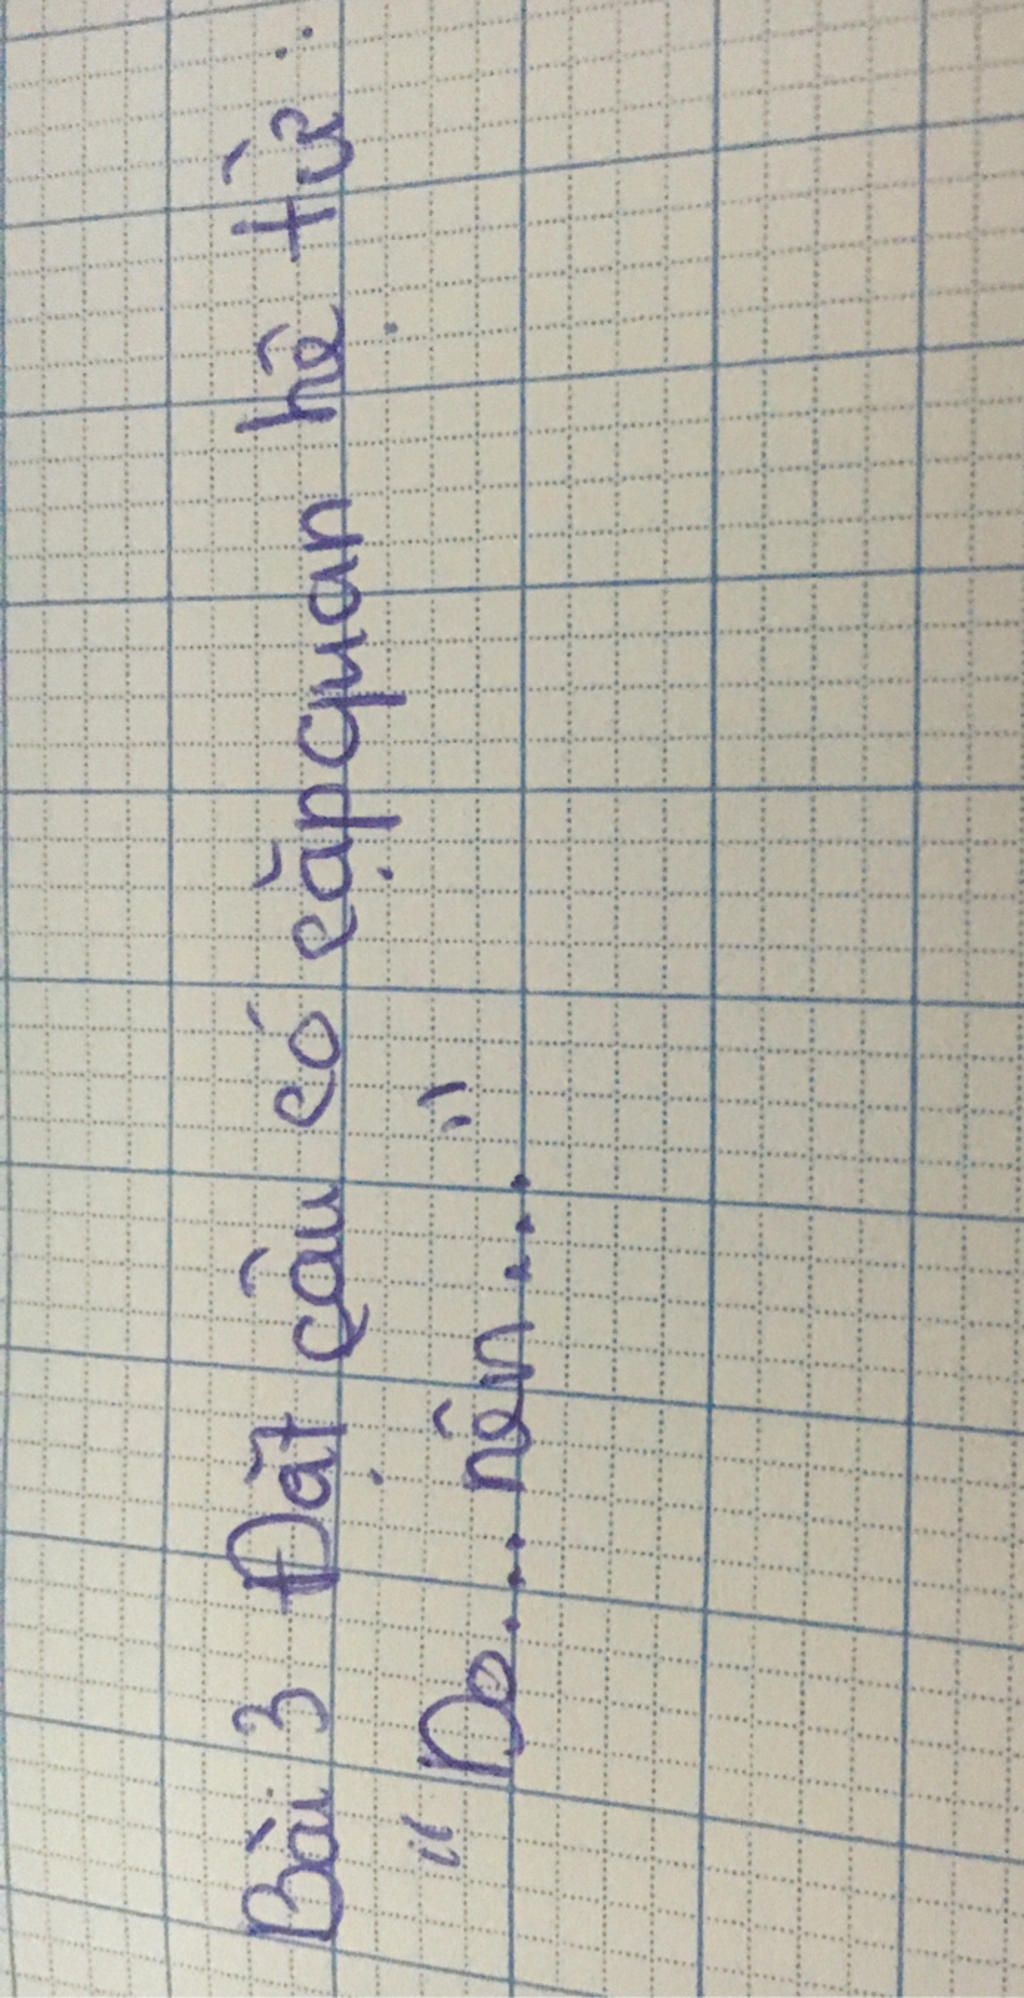 Bài 3 Đặt câu có cặp quan hệ từ :
" Do.... nên.... "